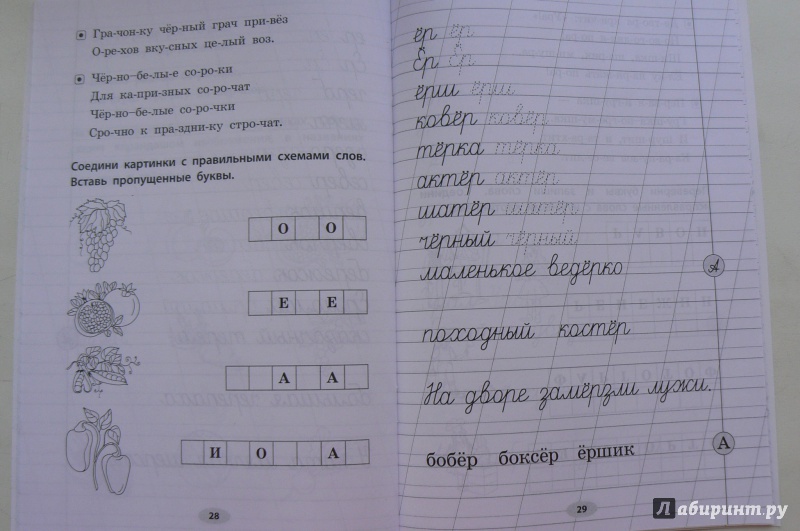 Гра-чон-ку чёр-ный грач при-вёз
О-ре-хов вку-сных це-лый воз.
Чёр-но-бе-лы-е со-ро-ки
Для ка-при-зных со-ро-чат
Чёр-но-бе-лые со-ро-чки
Сро-чно к пра-здни-ку стро-чат.
Соедини картинки с правильными схемами слов.
Вставь пропущенные буквы.
О О
Е Е
А А
И О А
28
ёр ёр
Ёр Ёр
ёрш ёрш
ковёр ковёр
тёрка тёрка
актёр актёр
шатёр шатёр
чёрный чёрный
маленькое ведёрко
А
походный костёр
На дворе замёрзли лужи.
А
бобёр боксёр ёршик
29
Лабиринт.ру